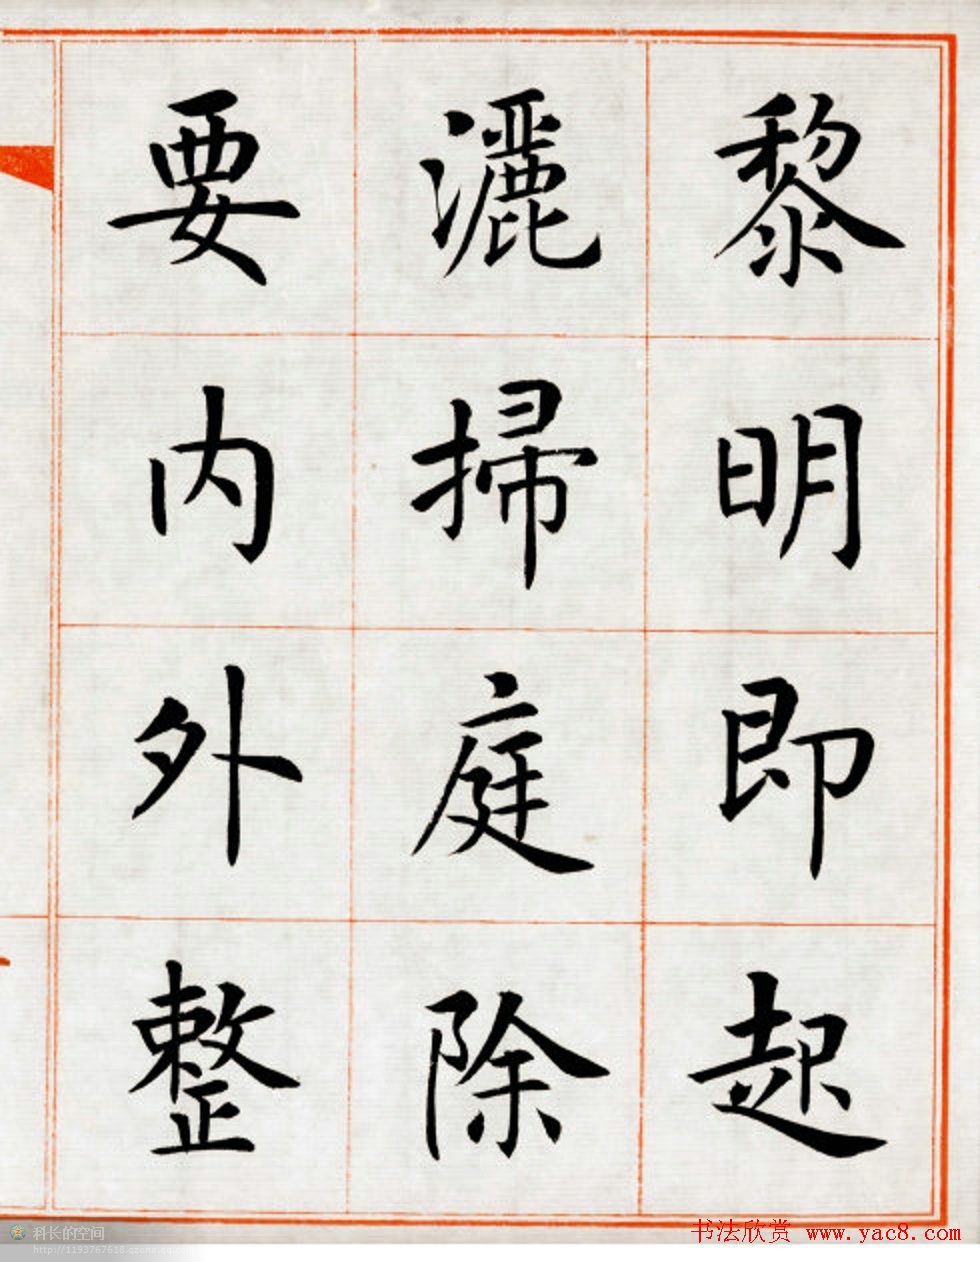 黎明即起
灑掃庭除
要内外整
科长的空间
http://1193767618.qzone.qq.com
书法欣赏 www.yac8.com